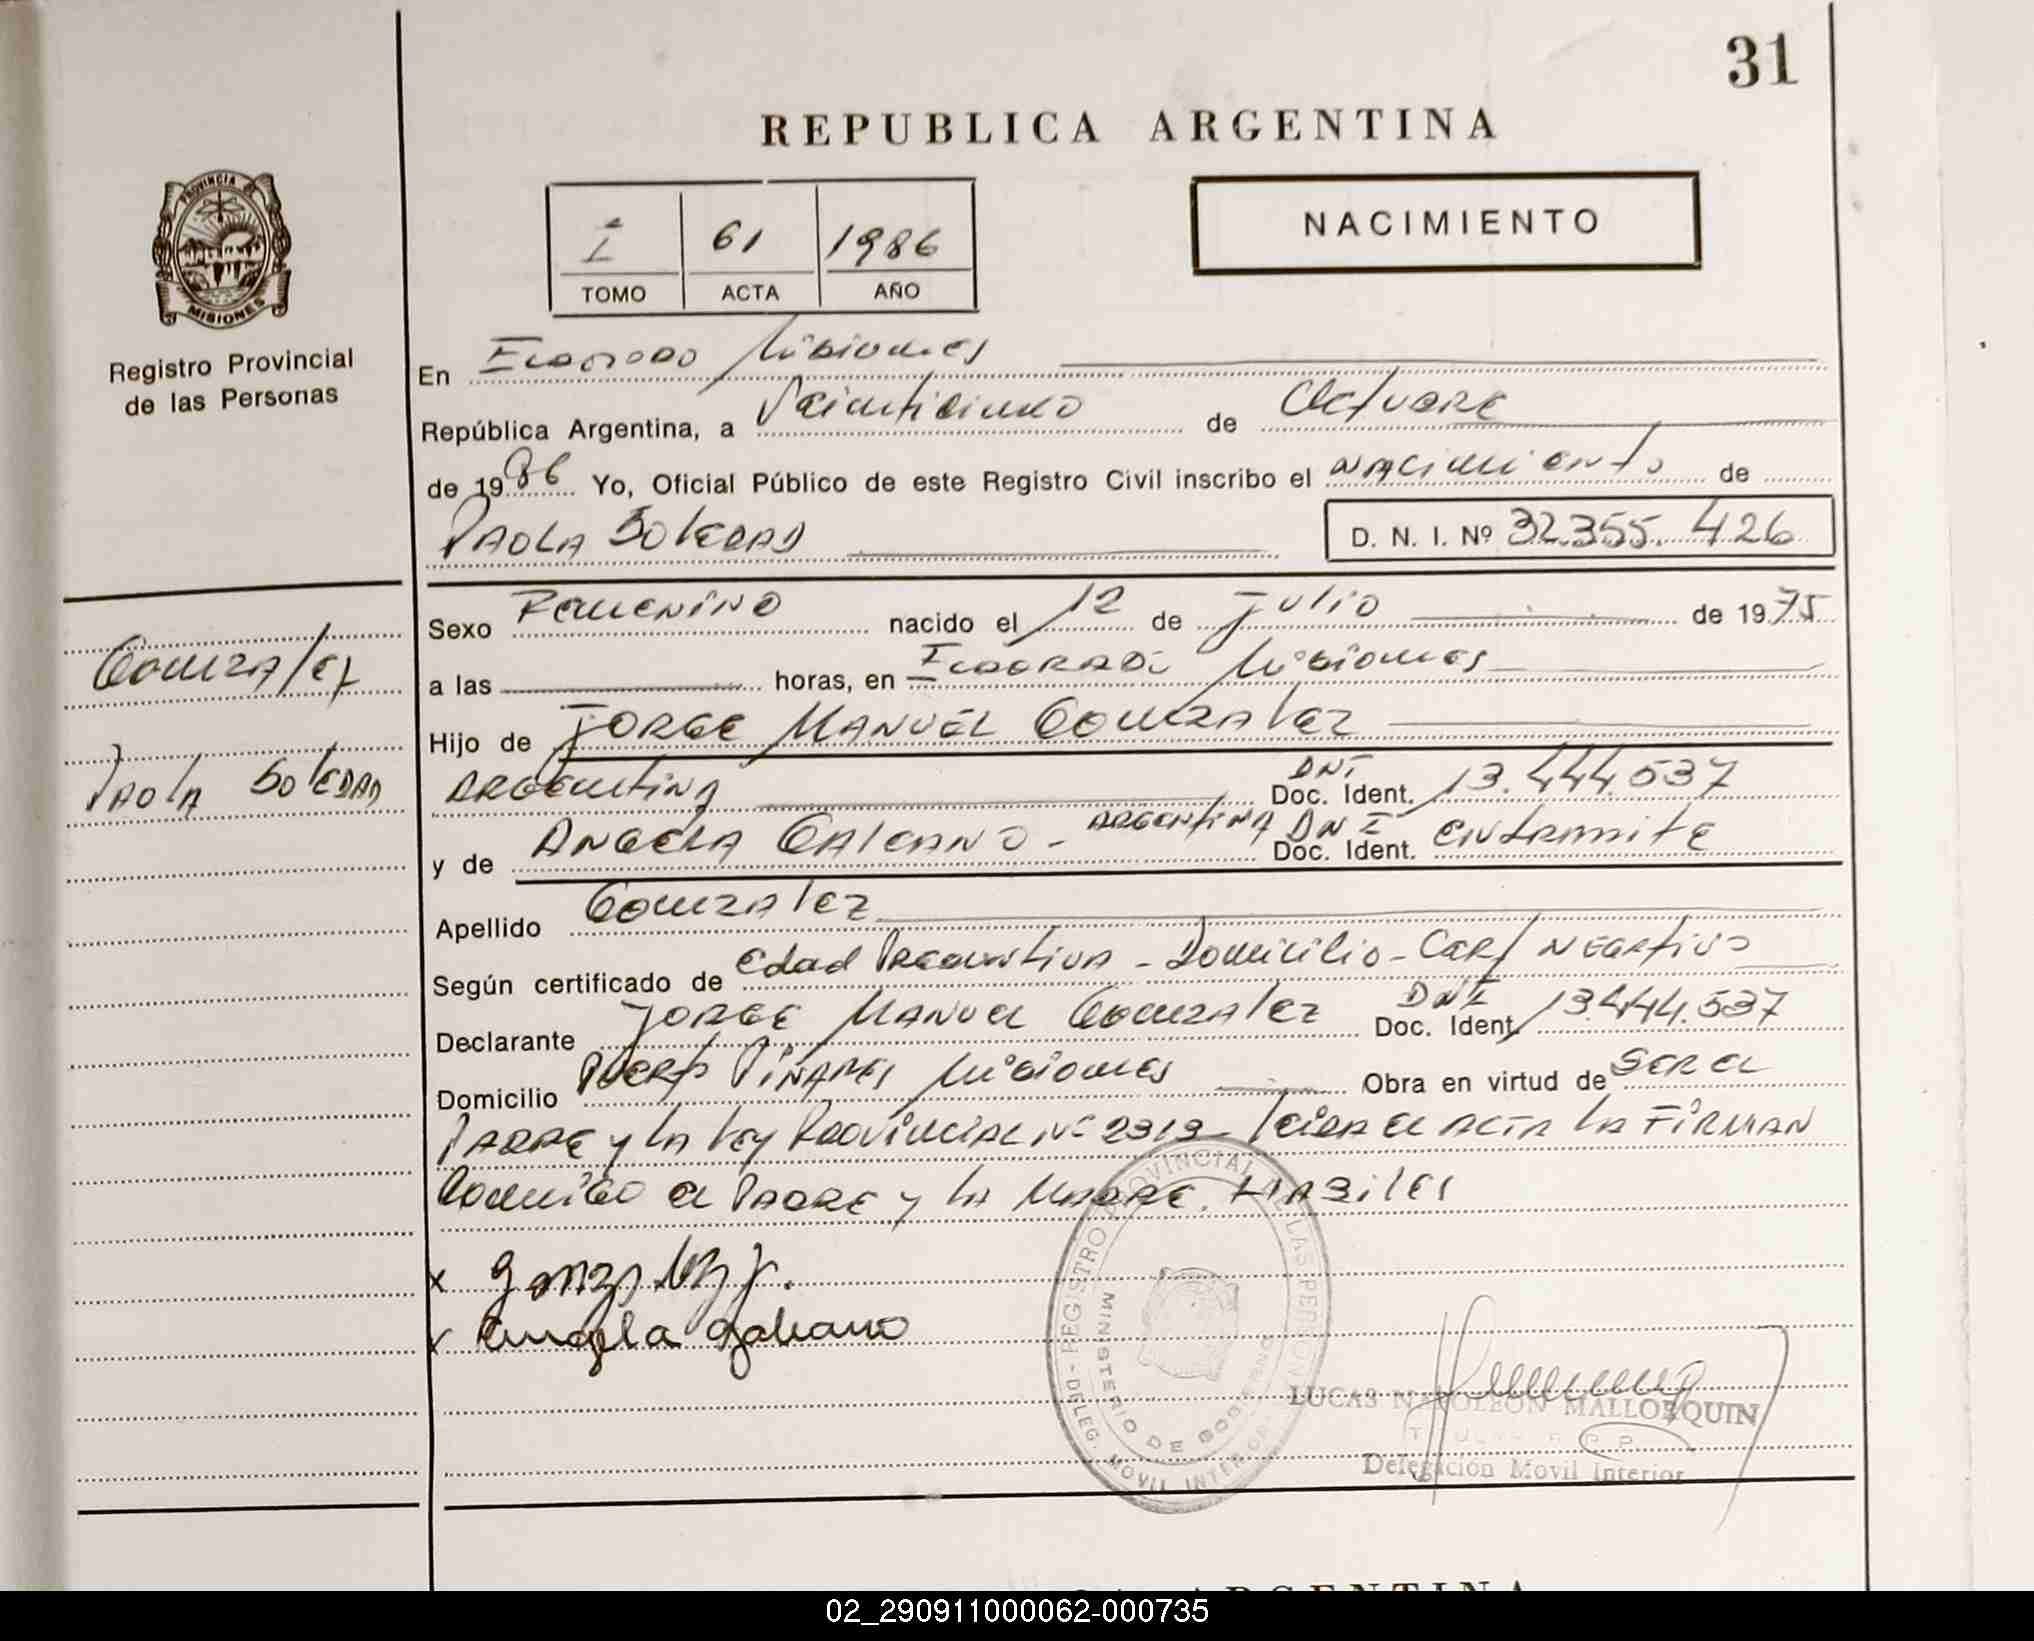 31
REPUBLICA ARGENTINA
PROVINCIA DE
MISIONES
Registro Provincial
de las Personas
I 61 1986
TOMO ACTA AÑO
NACIMIENTO
En Eldorado Misiones
República Argentina, a Veinticinco de Octubre
de 1986 Yo, Oficial Público de este Registro Civil inscribo el nacimiento de
PAOLA SOLEDAD D. N. I. Nº 32.355.426
Gonzalez
Paola Soledad
Sexo Femenino nacido el 12 de Julio de 1975
a las horas, en Eldorado Misiones
Hijo de JORGE MANUEL GONZALEZ
Argentina DNI Doc. Ident. 13.444.537
y de ANGELA GALEANO - Argentina DNI Doc. Ident. en tramite
Apellido Gonzalez
Según certificado de edad Presuntiva - Domicilio - Cert Negativo
Declarante JORGE MANUEL Gonzalez DNI Doc. Ident 13.444.537
Domicilio Puerto Piñares Misiones Obra en virtud de ser el
Padre y la Ley Provincial Nº 2319 - leida el acta la FIRMAN
conmigo el Padre y la Madre. HABILES
x Gonzalez J.
x Angela galeano
DELEG. MOVIL INTERIOR - REGISTRO PROVINCIAL DE LAS PERSONAS
MINISTERIO DE GOBIERNO
LUCAS NAPOLEON MALLORQUIN
Delegación Movil Interior
ARGENTINA
02_290911000062-000735